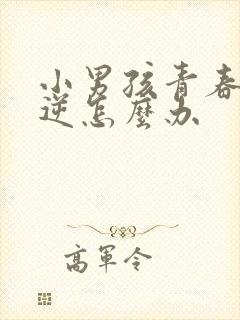 小男孩青春
逆怎麼办
高軍令